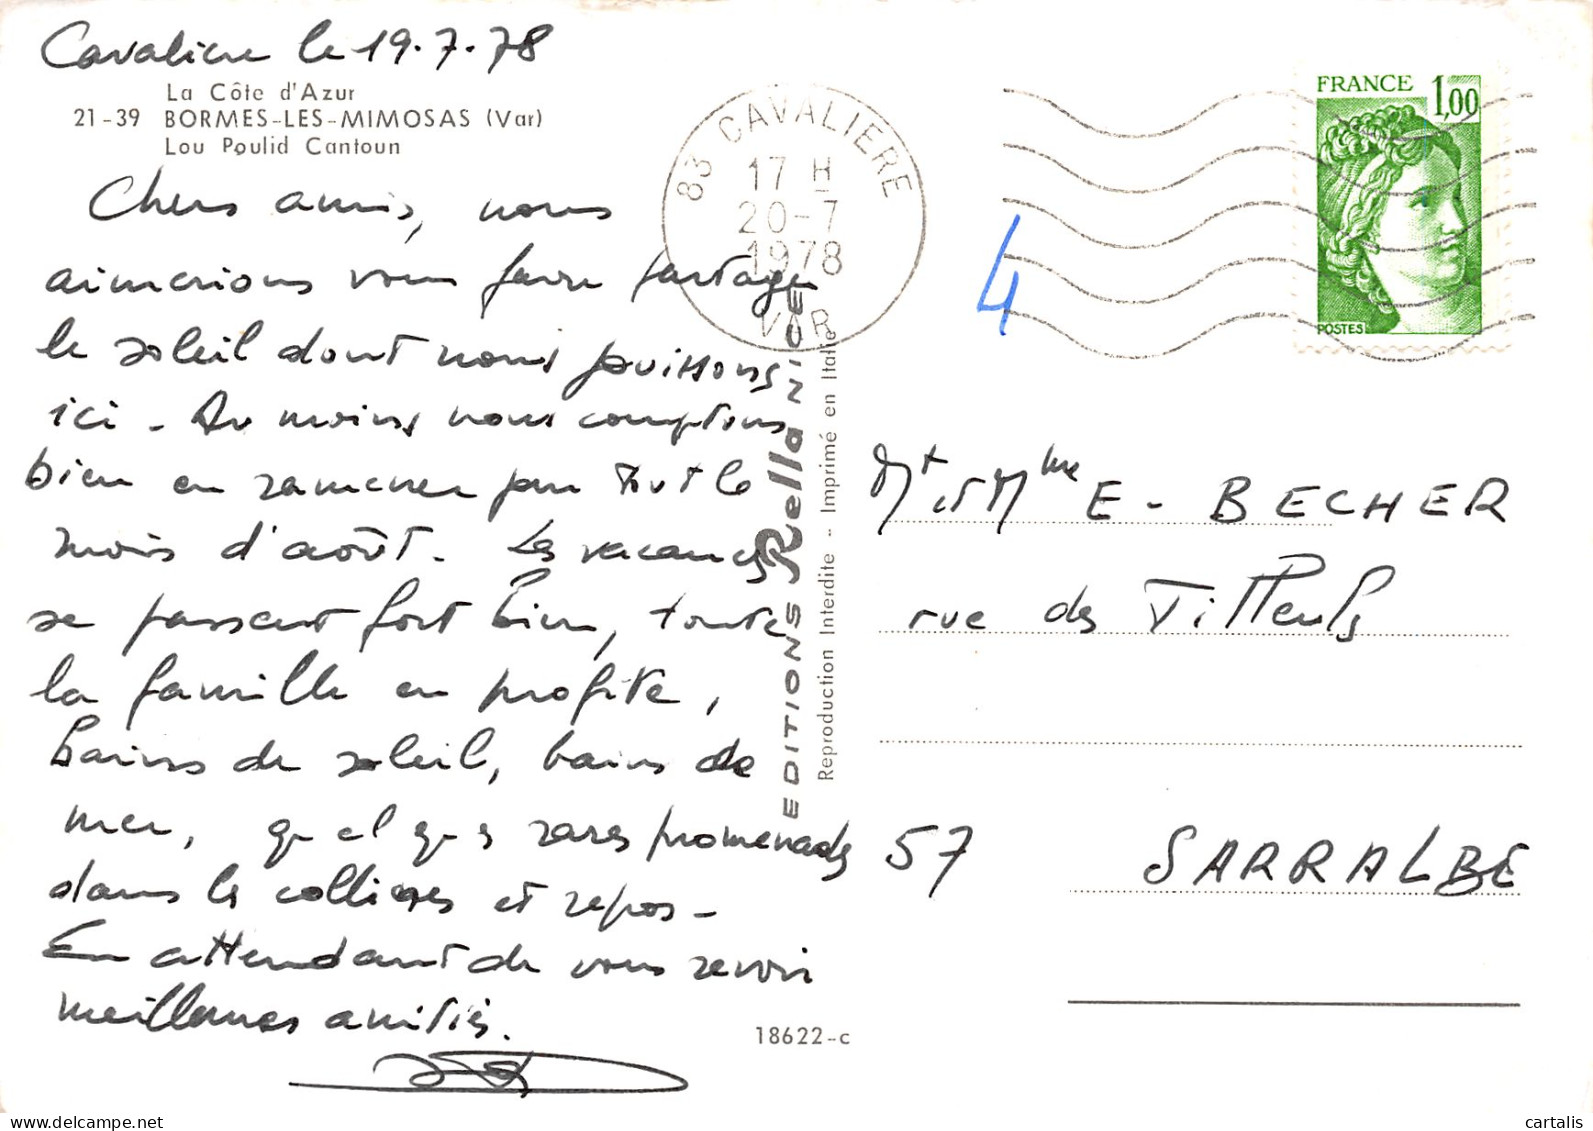 Cavalière le 19.7.78
La Côte d'Azur
21-39 BORMES-LES-MIMOSAS (Var)
Lou Poulid Cantoun
Chers amis, nous
aimerions vous faire partager
le soleil dont nous jouissons
ici - Au moins nous comptons
bien en ramener pour tout le
mois d'août. Les vacances
se passent fort bien, toute
la famille en profite,
bains de soleil, bains de
mer, quelques rares promenades
dans les collines et repos -
En attendant de vous revoir
meilleures amitiés.
18622-c
EDITIONS Rella NICE
Reproduction Interdite - Imprimé en Italie
83 CAVALIERE
17 H
20-7
1978
VAR
4
FRANCE 1,00
POSTES
Mr et Mme E - BECHER
rue des Tilleuls
57 SARRALBE
delcampe.net
cartalis